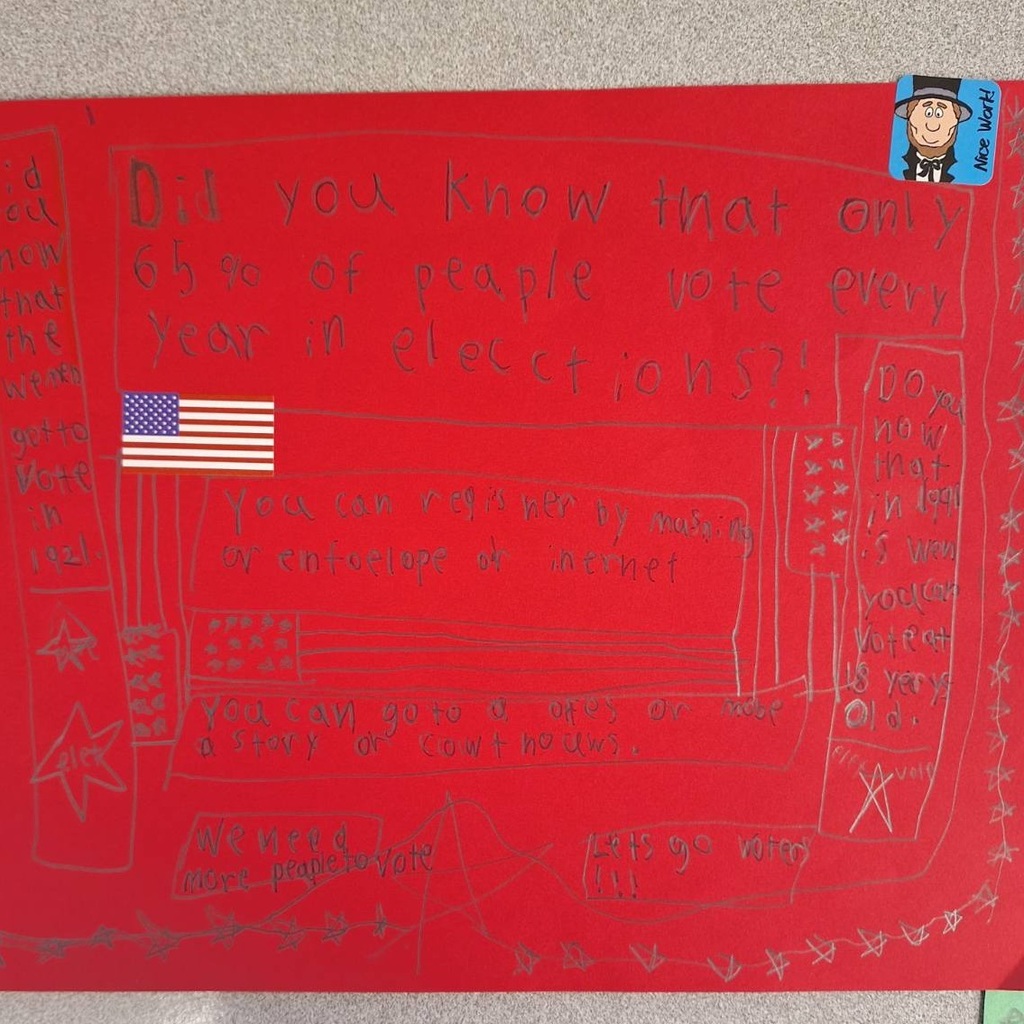 Did you know that only
65% of peaple vote every
year in elecctions?!
Nice Work!
id
ou
now
that
the
wemen
got to
vote
in
1921.
elet
You can regisner by
or entoelope or inernet
You can go to a or mabe
a story or cowthouws.
Do you
now
that
in
is wen
you can
vote at
18 yerys
Old.
vote
We need
more people to vote
Lets go voters
!!!